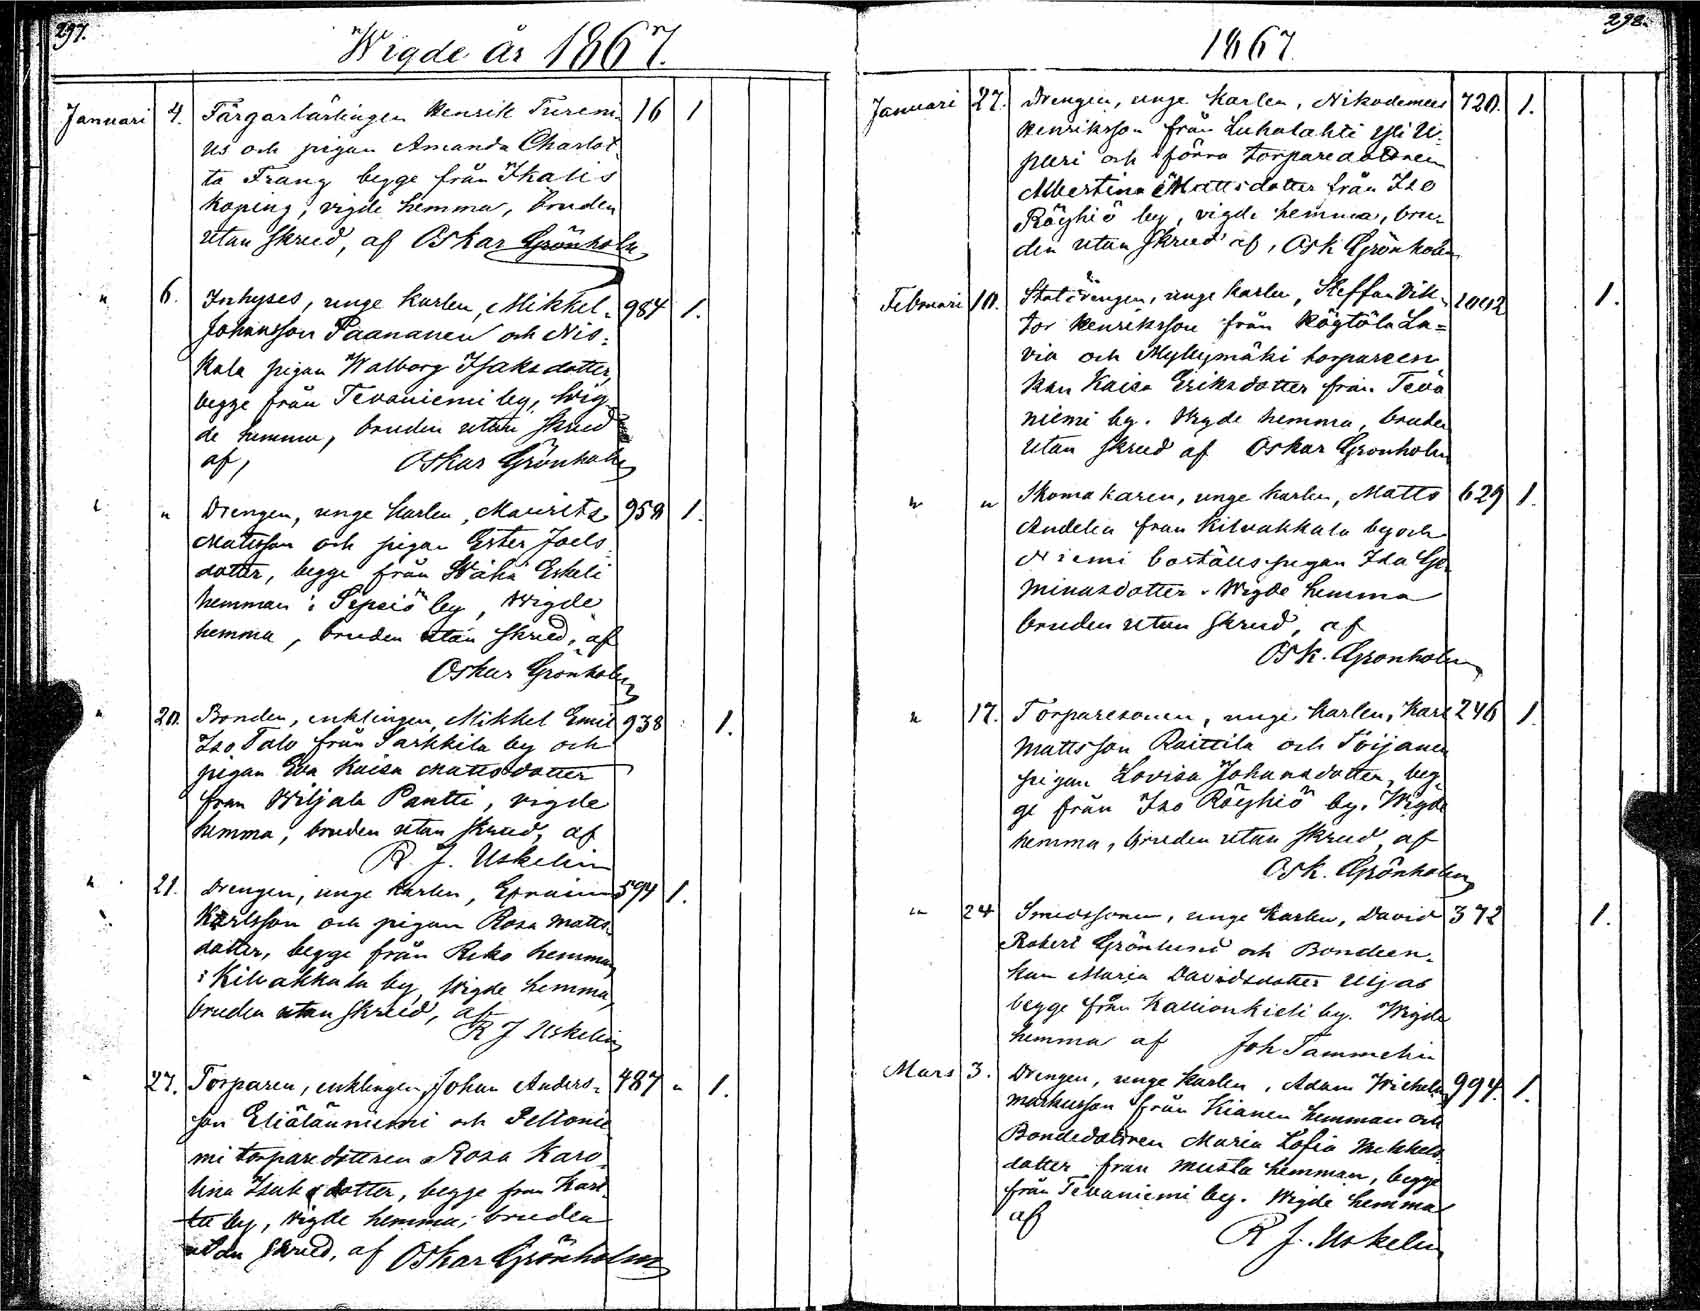 297.
Wigde år 1867.
Januari 4. Färgarlärlingen Henrik Tureni- 16 1
us och pigan Amanda Charlot-
ta Frang begge från Ikalis
köping, vigde hemma, bruden
utan skrud, af Oskar Grönholm
" 6. Inhyses, unge karlen, Mikkel 984 1.
Johansson Paananen och Nis-
kala pigan Walborg Isaksdotter,
begge från Tevaniemi by, wig-
de hemma, bruden utan skrud
af, Oskar Grönholm
" " Drengen, unge karlen, Mauritz 958 1.
Mattsson och pigan Ester Joels-
dotter, begge från Wähä Eskeli
hemman i Sipsiö by, Wigde
hemma, bruden utan skrud, af
Oskar Grönholm
" 20. Bonden, enklingen, Mikkel Emil 938 1.
Iso Talo från Sarkkila by och
pigan Eva Kaisa Mattsdotter
från Wiljala Pantti, vigde
hemma, bruden utan skrud, af
R. J. Uskelin
" 21. Drengen, unge karlen, Efraim 594 1.
Karlsson och pigan Rosa Matts-
dotter, begge från Reko hemman
i Kilvakkala by, Wigde hemma,
bruden utan skrud, af
R J Uskelin
" 27. Torparen, enklingen, Johan Anders- 487 " 1.
son Eliälänniemi och Peltonie
mi torparedottren Rosa Karo-
lina Isaksdotter, begge från Kart-
tu by, vigde hemma, bruden
utan skrud, af Oskar Grönholm
298.
1867.
Januari 27. Drengen, unge karlen, Nikodemus 720. 1.
Henriksson från Luhalahti Yli Vi-
puri och förra torparedottren
Albertina Mattsdotter från Iso
Röyhiö by, vigde hemma, bru-
den utan skrud af, Osk Grönholm
Februari 10. Statdrengen, unge karlen, Steffan Vik- 1002 1.
tor Henriksson från Högtöla La-
via och Myllymäki torpareen-
kan Kaisa Eriksdotter från Teva
niemi by. Wigde hemma, bruden
utan skrud af Oskar Gronholm
" " Skomakaren, unge karlen, Matts 629 1.
Andelin från Kilvakkala by och
Niemi boställspigan Ida Ge-
minasdotter. Wigde hemma
bruden utan skrud, af
Osk. Gronholm
" 17. Torparesonen, unge karlen, Karl 246 1.
Mattsson Raittila och Soijanen
pigan Lovisa Johansdotter, beg-
ge från Iso Röyhiö by. Wigde
hemma, bruden utan skrud, af
Osk. Grönholm
" 24 Smedssonen, unge karlen, David 372 1.
Robert Grönlund och Bondeen-
kan Maria Davidsdotter Uljas
begge från Kallionkieli by. Wigde
hemma af Joh Tammelin
Mars 3. Drengen, unge karlen, Adam Wichelm 994. 1.
Markusson från Kianen hemman och
Bondedottren Maria Sofia Mikkels-
dotter från Musta hemman, begge
från Tevaniemi by. Wigde hemma
af
R J. Uskelin